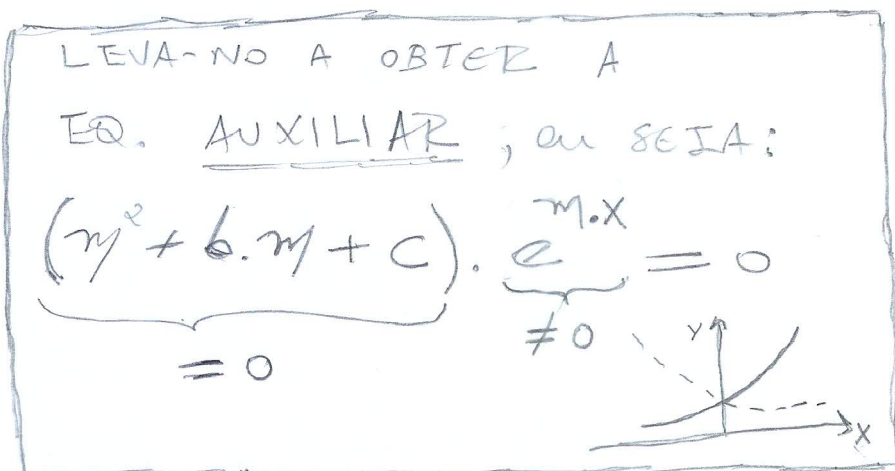 LEVA-NO A OBTER A
EQ. AUXILIAR ; ou SEJA:
(m² + b.m + c) . e^{m.x} = 0
= 0
≠ 0
Y
X